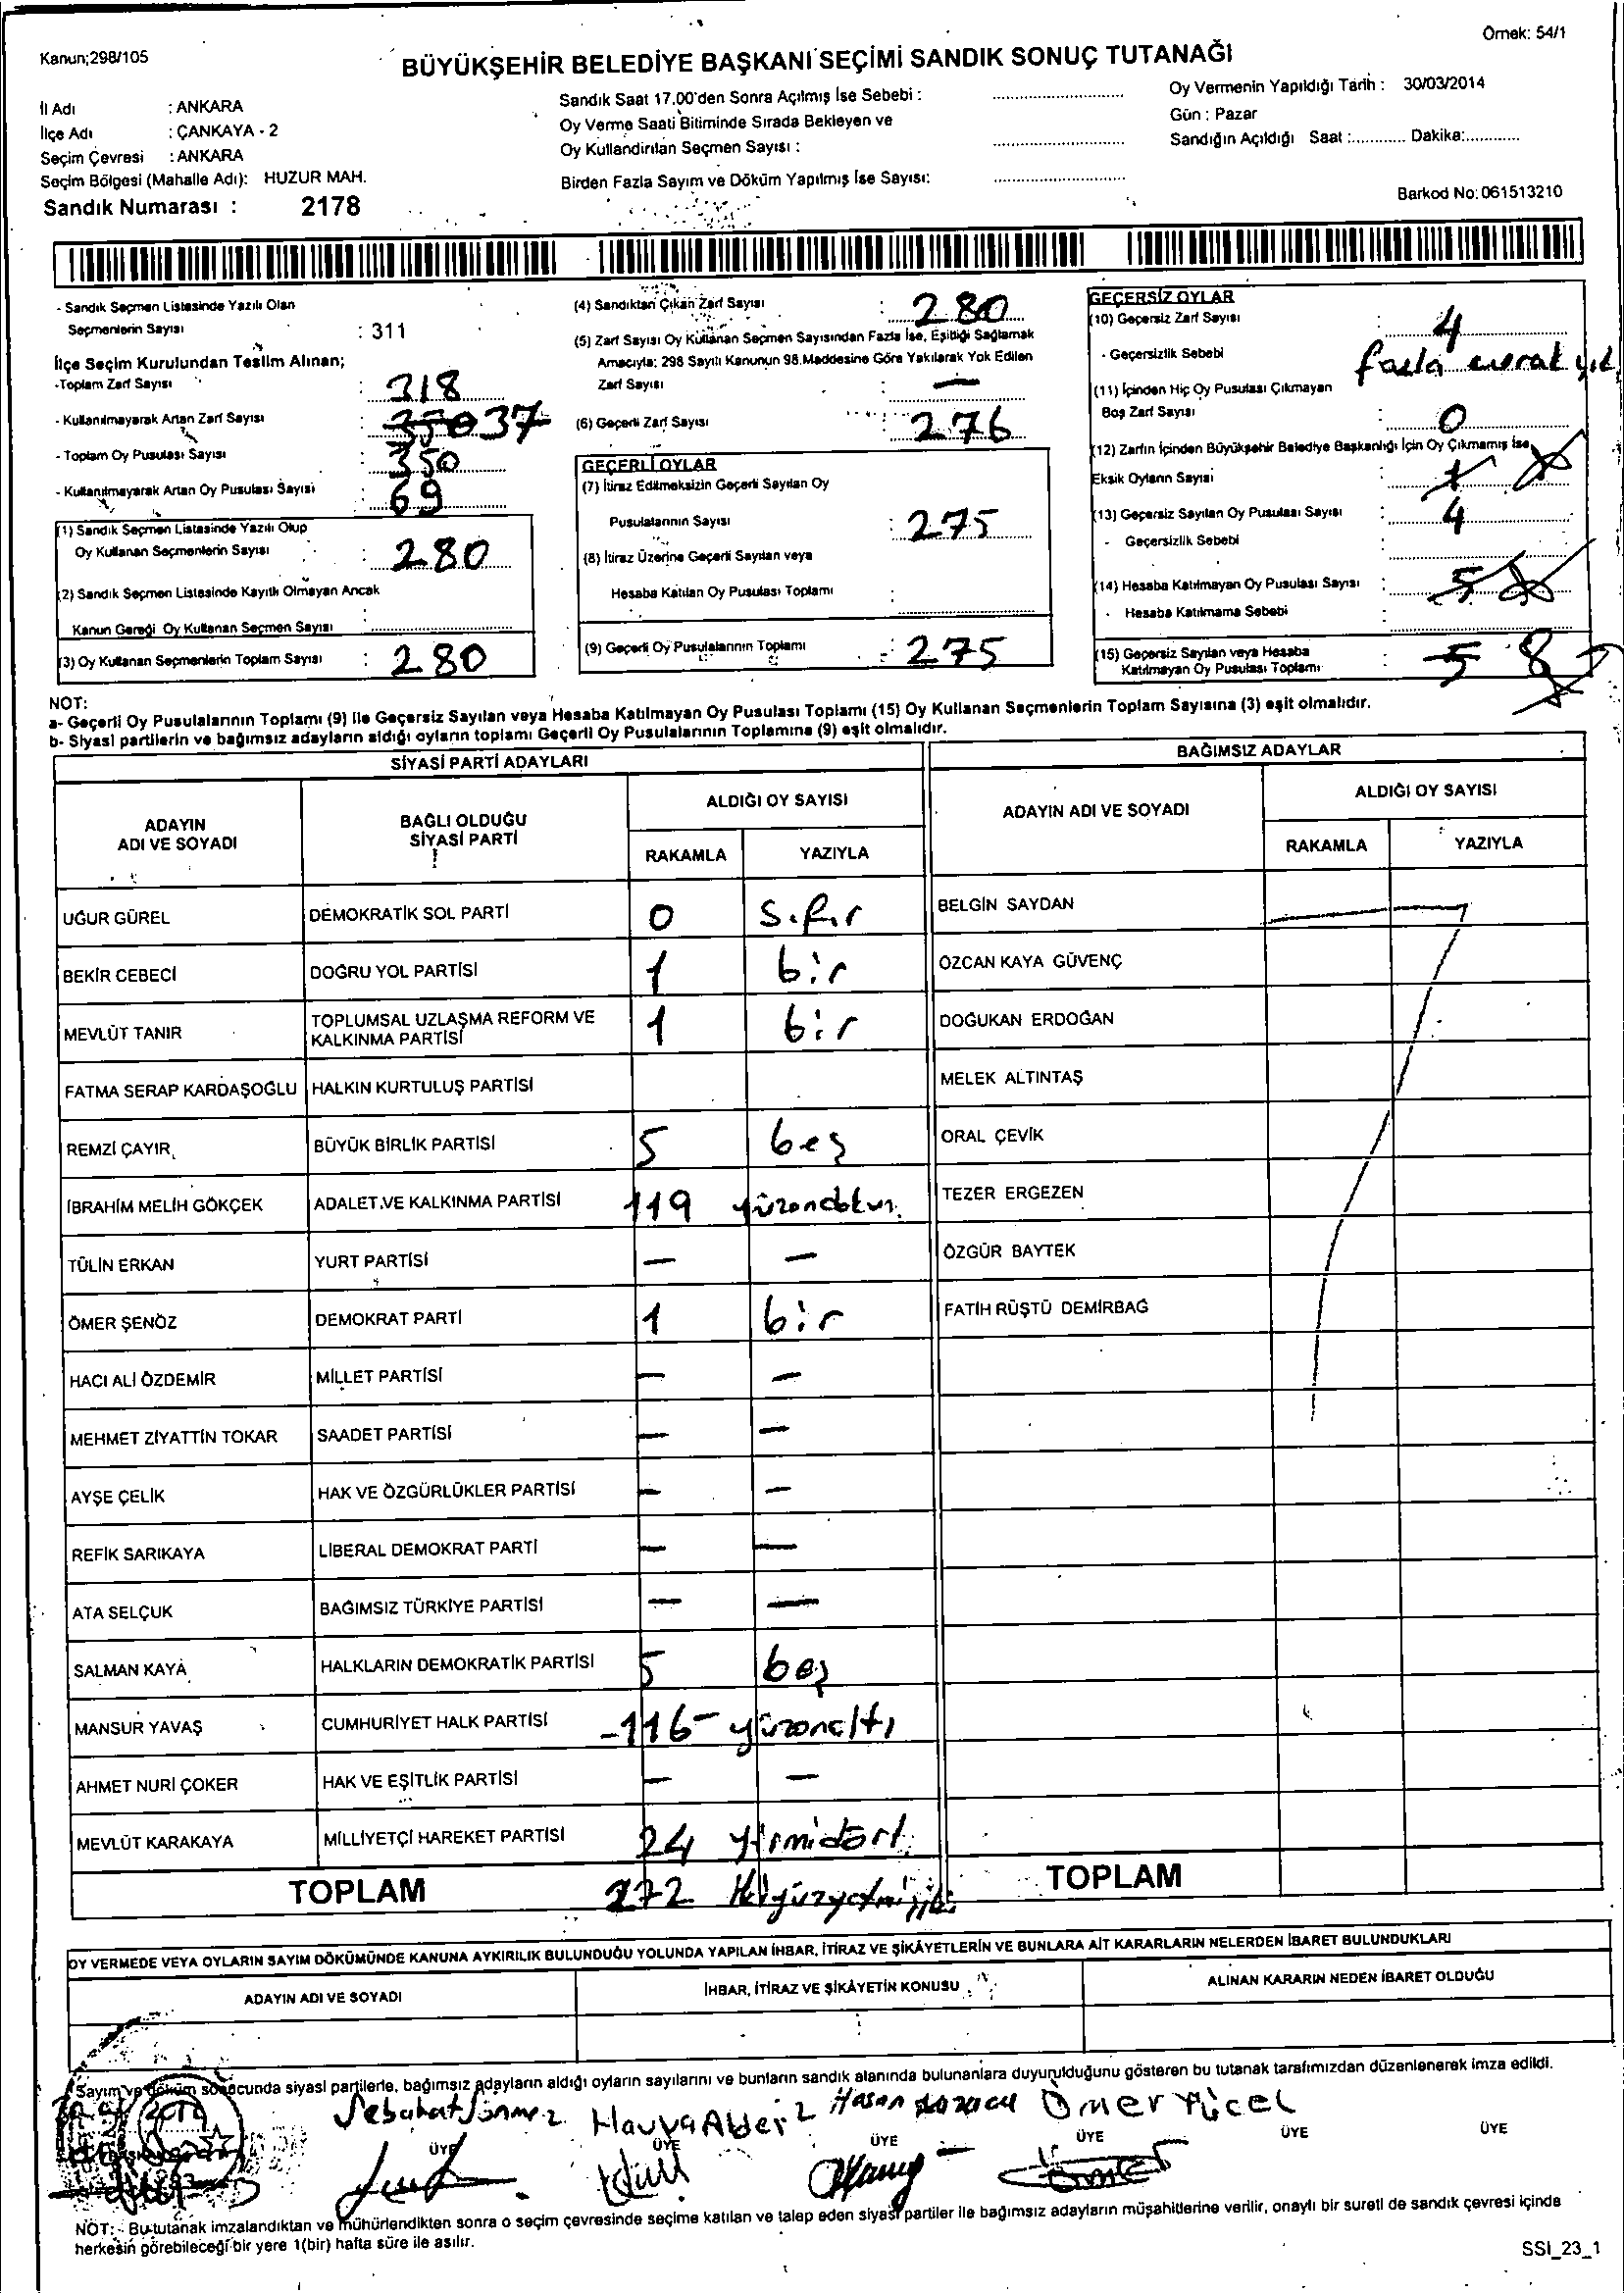 Örnek: 54/1
Kanun;298/105
BÜYÜKŞEHİR BELEDİYE BAŞKANI SEÇİMİ SANDIK SONUÇ TUTANAĞI
İl Adı : ANKARA
İlçe Adı : ÇANKAYA - 2
Seçim Çevresi : ANKARA
Seçim Bölgesi (Mahalle Adı): HUZUR MAH.
Sandık Numarası : 2178
Sandık Saat 17.00'den Sonra Açılmış İse Sebebi :
Oy Verme Saati Bitiminde Sırada Bekleyen ve
Oy Kullandırılan Seçmen Sayısı :
Birden Fazla Sayım ve Döküm Yapılmış İse Sayısı:
Oy Vermenin Yapıldığı Tarih : 30/03/2014
Gün : Pazar
Sandığın Açıldığı Saat :............ Dakika:............
Barkod No: 061513210
- Sandık Seçmen Listesinde Yazılı Olan
Seçmenlerin Sayısı : 311
İlçe Seçim Kurulundan Teslim Alınan;
-Toplam Zarf Sayısı : 318
- Kullanılmayarak Artan Zarf Sayısı : 37
- Toplam Oy Pusulası Sayısı : 350
- Kullanılmayarak Artan Oy Pusulası Sayısı : 69
(1) Sandık Seçmen Listesinde Yazılı Olup
Oy Kullanan Seçmenlerin Sayısı : 280
(2) Sandık Seçmen Listesinde Kayıtlı Olmayan Ancak
Kanun Gereği Oy Kullanan Seçmen Sayısı :
(3) Oy Kullanan Seçmenlerin Toplam Sayısı : 280
(4) Sandıktan Çıkan Zarf Sayısı : 280
(5) Zarf Sayısı Oy Kullanan Seçmen Sayısından Fazla İse, Eşitliği Sağlamak
Amacıyla; 298 Sayılı Kanunun 98.Maddesine Göre Yakılarak Yok Edilen
Zarf Sayısı : —
(6) Geçerli Zarf Sayısı : 276
GEÇERLİ OYLAR
(7) İtiraz Edilmeksizin Geçerli Sayılan Oy
Pusulalarının Sayısı : 275
(8) İtiraz Üzerine Geçerli Sayılan veya
Hesaba Katılan Oy Pusulası Toplamı :
(9) Geçerli Oy Pusulalarının Toplamı : 275
GEÇERSİZ OYLAR
(10) Geçersiz Zarf Sayısı : 4
- Geçersizlik Sebebi fazla evrak
(11) İçinden Hiç Oy Pusulası Çıkmayan
Boş Zarf Sayısı : 0
(12) Zarfın İçinden Büyükşehir Belediye Başkanlığı İçin Oy Çıkmamış İse
Eksik Oyların Sayısı : 1
(13) Geçersiz Sayılan Oy Pusulası Sayısı : 4
- Geçersizlik Sebebi :
(14) Hesaba Katılmayan Oy Pusulası Sayısı : 5
- Hesaba Katılmama Sebebi :
(15) Geçersiz Sayılan veya Hesaba
Katılmayan Oy Pusulası Toplamı : 5 8
NOT:
a- Geçerli Oy Pusulalarının Toplamı (9) ile Geçersiz Sayılan veya Hesaba Katılmayan Oy Pusulası Toplamı (15) Oy Kullanan Seçmenlerin Toplam Sayısına (3) eşit olmalıdır.
b- Siyasi partilerin ve bağımsız adayların aldığı oyların toplamı Geçerli Oy Pusulalarının Toplamına (9) eşit olmalıdır.
SİYASİ PARTİ ADAYLARI
ADAYIN ADI VE SOYADI
BAĞLI OLDUĞU SİYASİ PARTİ
ALDIĞI OY SAYISI
RAKAMLA YAZIYLA
UĞUR GÜREL DEMOKRATİK SOL PARTİ 0 sıfır
BEKİR CEBECİ DOĞRU YOL PARTİSİ 1 bir
MEVLÜT TANIR TOPLUMSAL UZLAŞMA REFORM VE KALKINMA PARTİSİ 1 bir
FATMA SERAP KARDAŞOĞLU HALKIN KURTULUŞ PARTİSİ
REMZİ ÇAYIR BÜYÜK BİRLİK PARTİSİ 5 beş
İBRAHİM MELİH GÖKÇEK ADALET.VE KALKINMA PARTİSİ 119 yüzondokuz
TÜLİN ERKAN YURT PARTİSİ — —
ÖMER ŞENÖZ DEMOKRAT PARTİ 1 bir
HACI ALİ ÖZDEMİR MİLLET PARTİSİ — —
MEHMET ZİYATTİN TOKAR SAADET PARTİSİ — —
AYŞE ÇELİK HAK VE ÖZGÜRLÜKLER PARTİSİ — —
REFİK SARIKAYA LİBERAL DEMOKRAT PARTİ — —
ATA SELÇUK BAĞIMSIZ TÜRKİYE PARTİSİ — —
SALMAN KAYA HALKLARIN DEMOKRATİK PARTİSİ 5 beş
MANSUR YAVAŞ CUMHURİYET HALK PARTİSİ -116- yüzonaltı
AHMET NURİ ÇOKER HAK VE EŞİTLİK PARTİSİ — —
MEVLÜT KARAKAYA MİLLİYETÇİ HAREKET PARTİSİ 24 yirmidört
TOPLAM 272 ikiyüzyetmişiki
BAĞIMSIZ ADAYLAR
ADAYIN ADI VE SOYADI
ALDIĞI OY SAYISI
RAKAMLA YAZIYLA
BELGİN SAYDAN
ÖZCAN KAYA GÜVENÇ
DOĞUKAN ERDOĞAN
MELEK ALTINTAŞ
ORAL ÇEVİK
TEZER ERGEZEN
ÖZGÜR BAYTEK
FATİH RÜŞTÜ DEMİRBAĞ
TOPLAM
OY VERMEDE VEYA OYLARIN SAYIM DÖKÜMÜNDE KANUNA AYKIRILIK BULUNDUĞU YOLUNDA YAPILAN İHBAR, İTİRAZ VE ŞİKÂYETLERİN VE BUNLARA AİT KARARLARIN NELERDEN İBARET BULUNDUKLARI
ADAYIN ADI VE SOYADI İHBAR, İTİRAZ VE ŞİKÂYETİN KONUSU ALINAN KARARIN NEDEN İBARET OLDUĞU
Sayım ve döküm sonucunda siyasi partilerle, bağımsız adayların aldığı oyların sayılarını ve bunların sandık alanında bulunanlara duyurulduğunu gösteren bu tutanak tarafımızdan düzenlenerek imza edildi.
Sebahat Sönmez Havva Hasan Ömer Yücel
ÜYE ÜYE ÜYE ÜYE ÜYE ÜYE
NOT: - Bu tutanak imzalandıktan ve mühürlendikten sonra o seçim çevresinde seçime katılan ve talep eden siyasi partiler ile bağımsız adayların müşahitlerine verilir, onaylı bir sureti de sandık çevresi içinde
herkesin görebileceği bir yere 1(bir) hafta süre ile asılır.
SSI_23_1